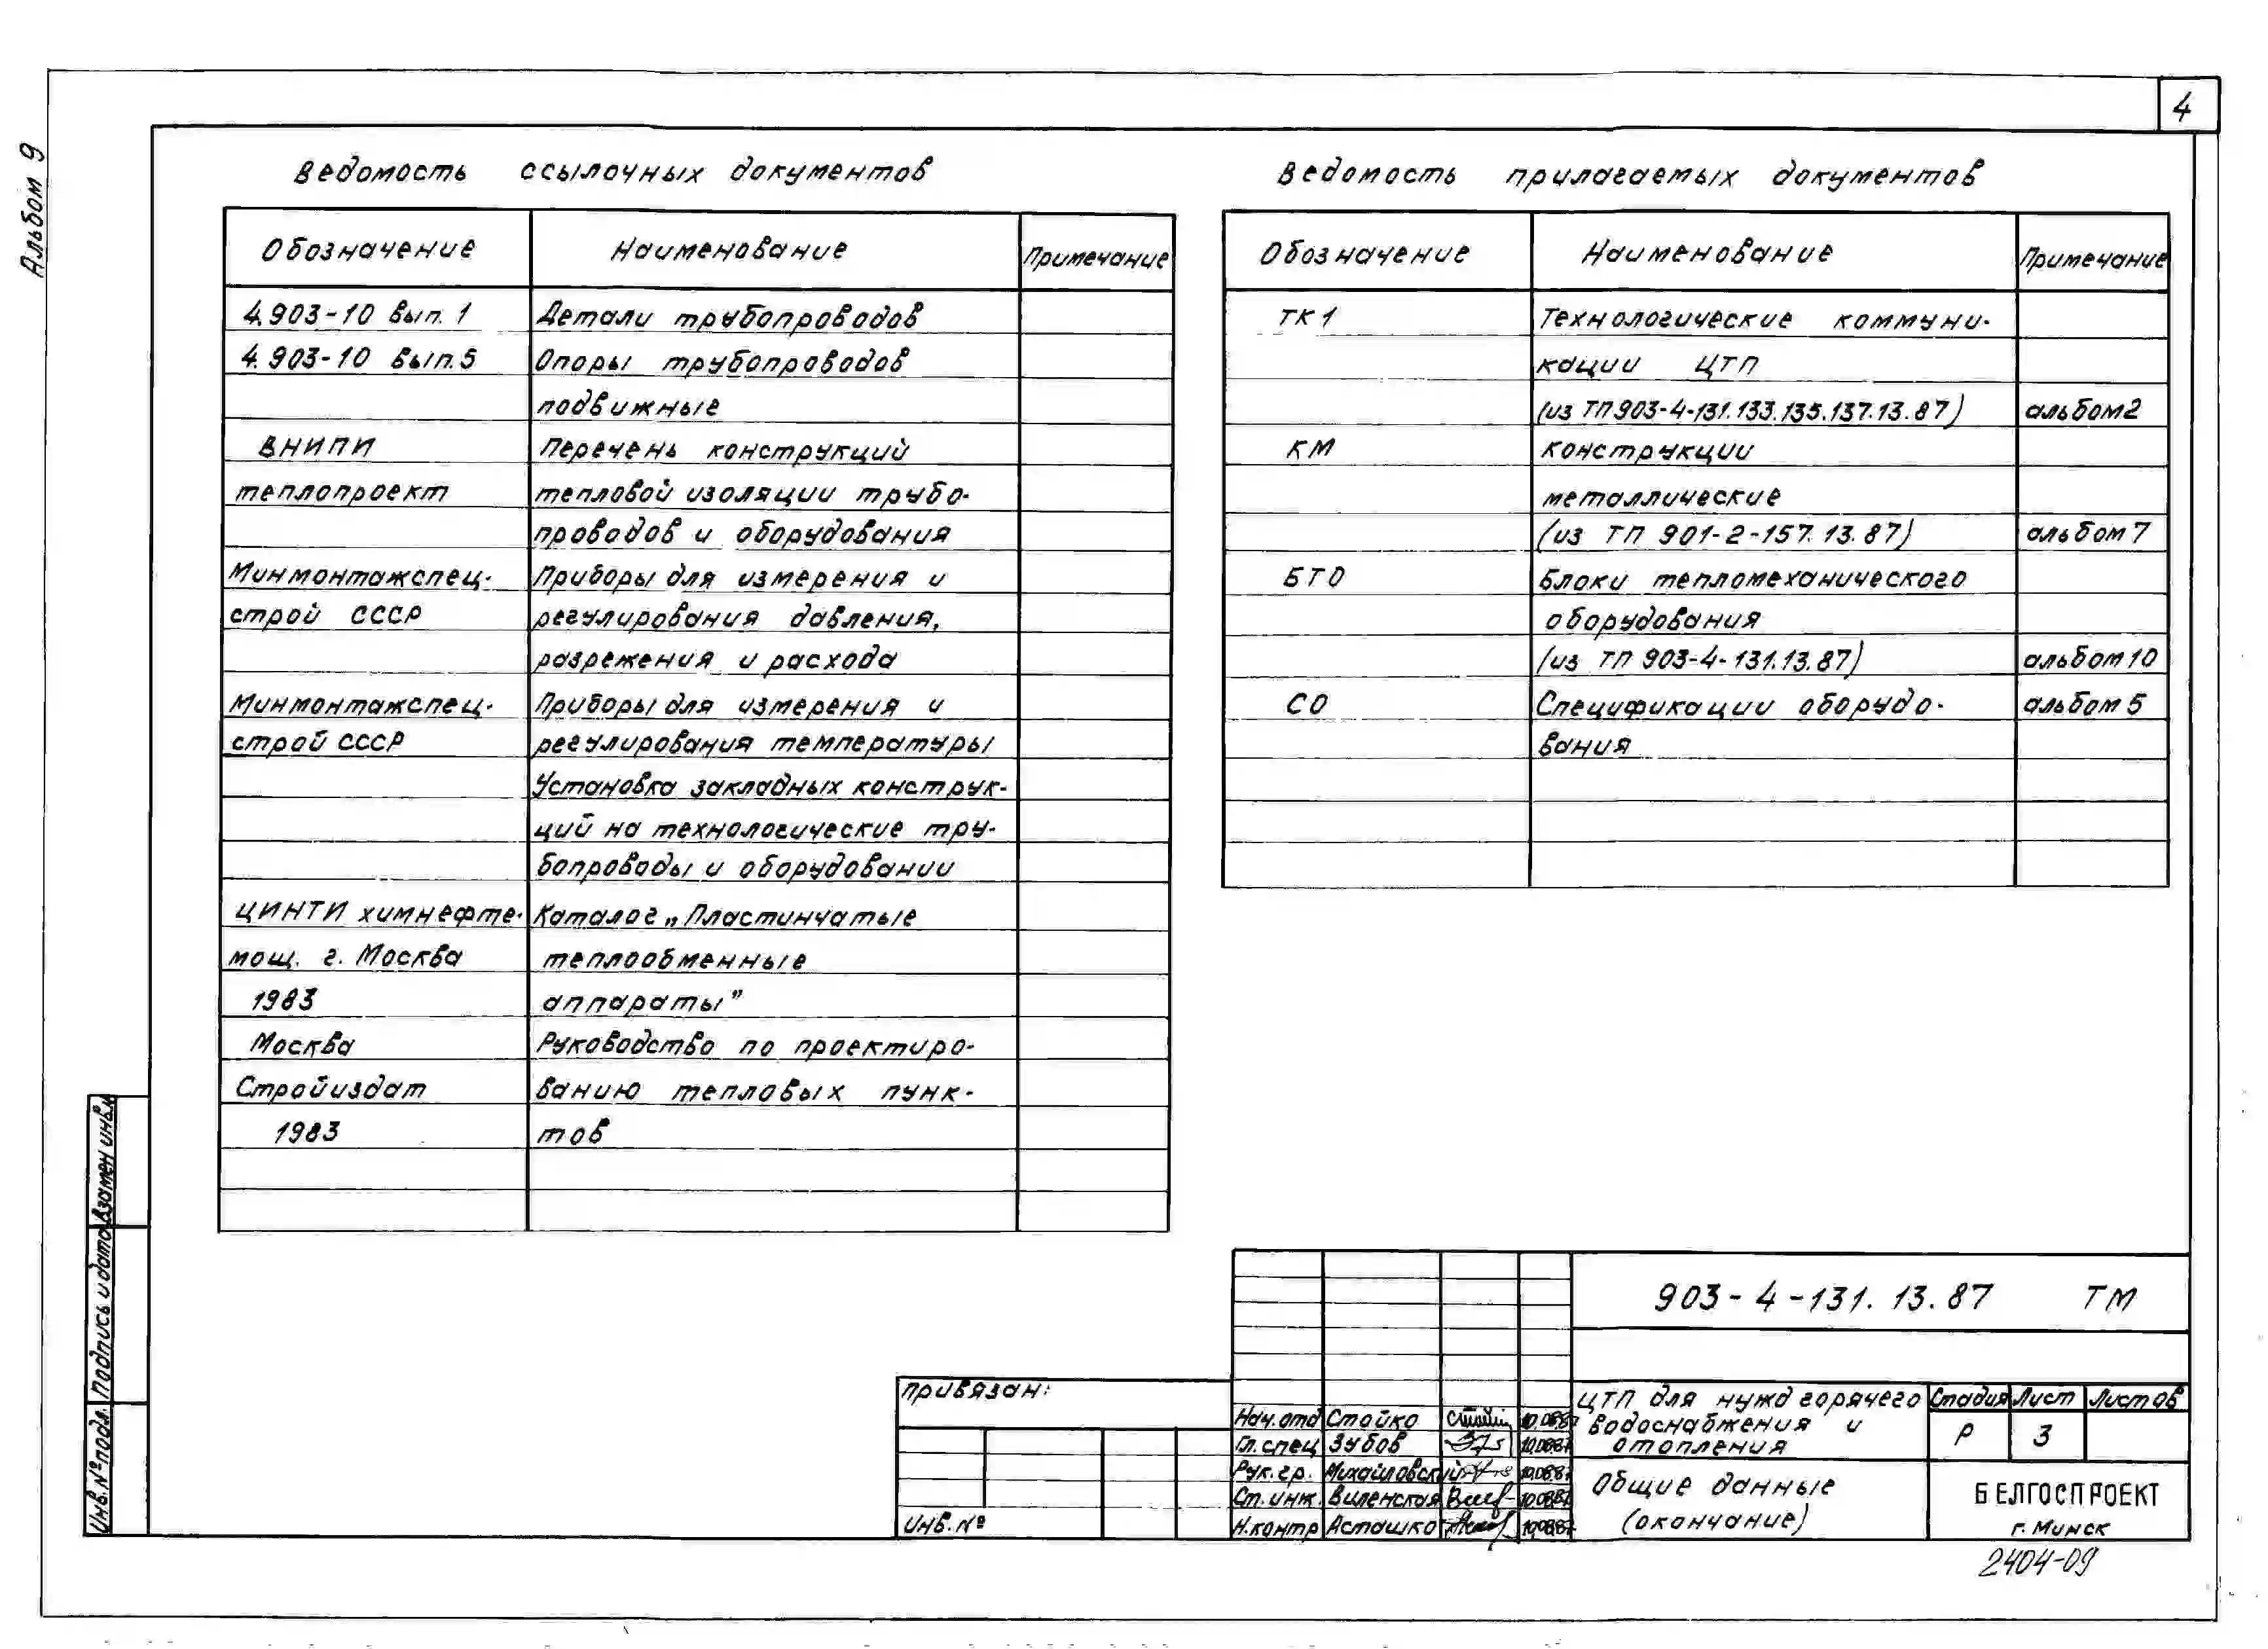 4
Альбом 9
Ведомость ссылочных документов
Обозначение Наименование Примечание
4.903-10 вып. 1 Детали трубопроводов
4.903-10 вып. 5 Опоры трубопроводов
подвижные
ВНИПИ Перечень конструкций
теплопроект тепловой изоляции трубо-
проводов и оборудования
Минмонтажспец- Приборы для измерения и
строй СССР регулирования давления,
разрежения и расхода
Минмонтажспец- Приборы для измерения и
строй СССР регулирования температуры
Установка закладных конструк-
ций на технологические тру-
бопроводы и оборудовании
ЦИНТИ химнефте- Каталог „Пластинчатые
мощ. г. Москва теплообменные
1983 аппараты"
Москва Руководство по проектиро-
Стройиздат ванию тепловых пунк-
1983 тов
Ведомость прилагаемых документов
Обозначение Наименование Примечание
ТК1 Технологические коммуни-
кации ЦТП
(из ТП903-4-131.133.135.137.13.87) альбом 2
КМ Конструкции
металлические
(из ТП 901-2-157.13.87) альбом 7
БТО Блоки тепломеханического
оборудования
(из ТП 903-4-131.13.87) альбом 10
СО Спецификации оборудо- альбом 5
вания
Взамен инв.№
Подпись и дата
Инв.№подл.
Привязан:
Инв.№
903-4-131.13.87 ТМ
Нач.отд Стойко 10.08.87
Гл.спец Зубов 10.08.87
Рук.гр. Михайловский 10.08.87
Ст.инж. Виленская 10.08.87
Н.контр Асташко 10.08.87
ЦТП для нужд горячего
водоснабжения и
отопления
Стадия Лист Листов
Р 3
Общие данные
(окончание)
БЕЛГОСПРОЕКТ
г. Минск
2404-09